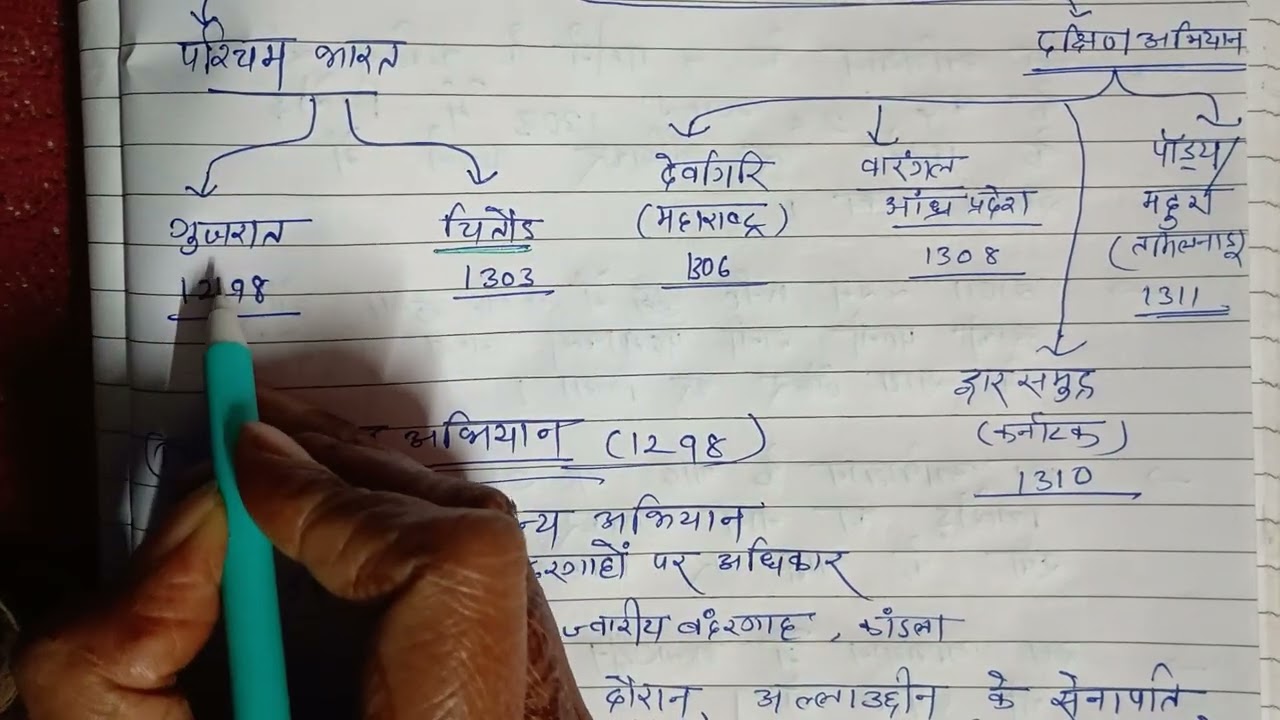 पश्चिम भारत
दक्षिण अभियान
गुजरात
1298
चितौड
1303
देवगिरि
(महाराष्ट्र)
1306
वारंगल
आंध्र प्रदेश
1308
पांड्य/
मदुरा
(तमिलनाडू
1311
द्वार समुद्र
(कर्नाटक)
1310
अभियान (1298)
न्य अभियान
दरगाहों पर अधिकार
ज्वारीय बंदरगाह, कांडला
दौरान, अल्लाउद्दीन के सेनापति